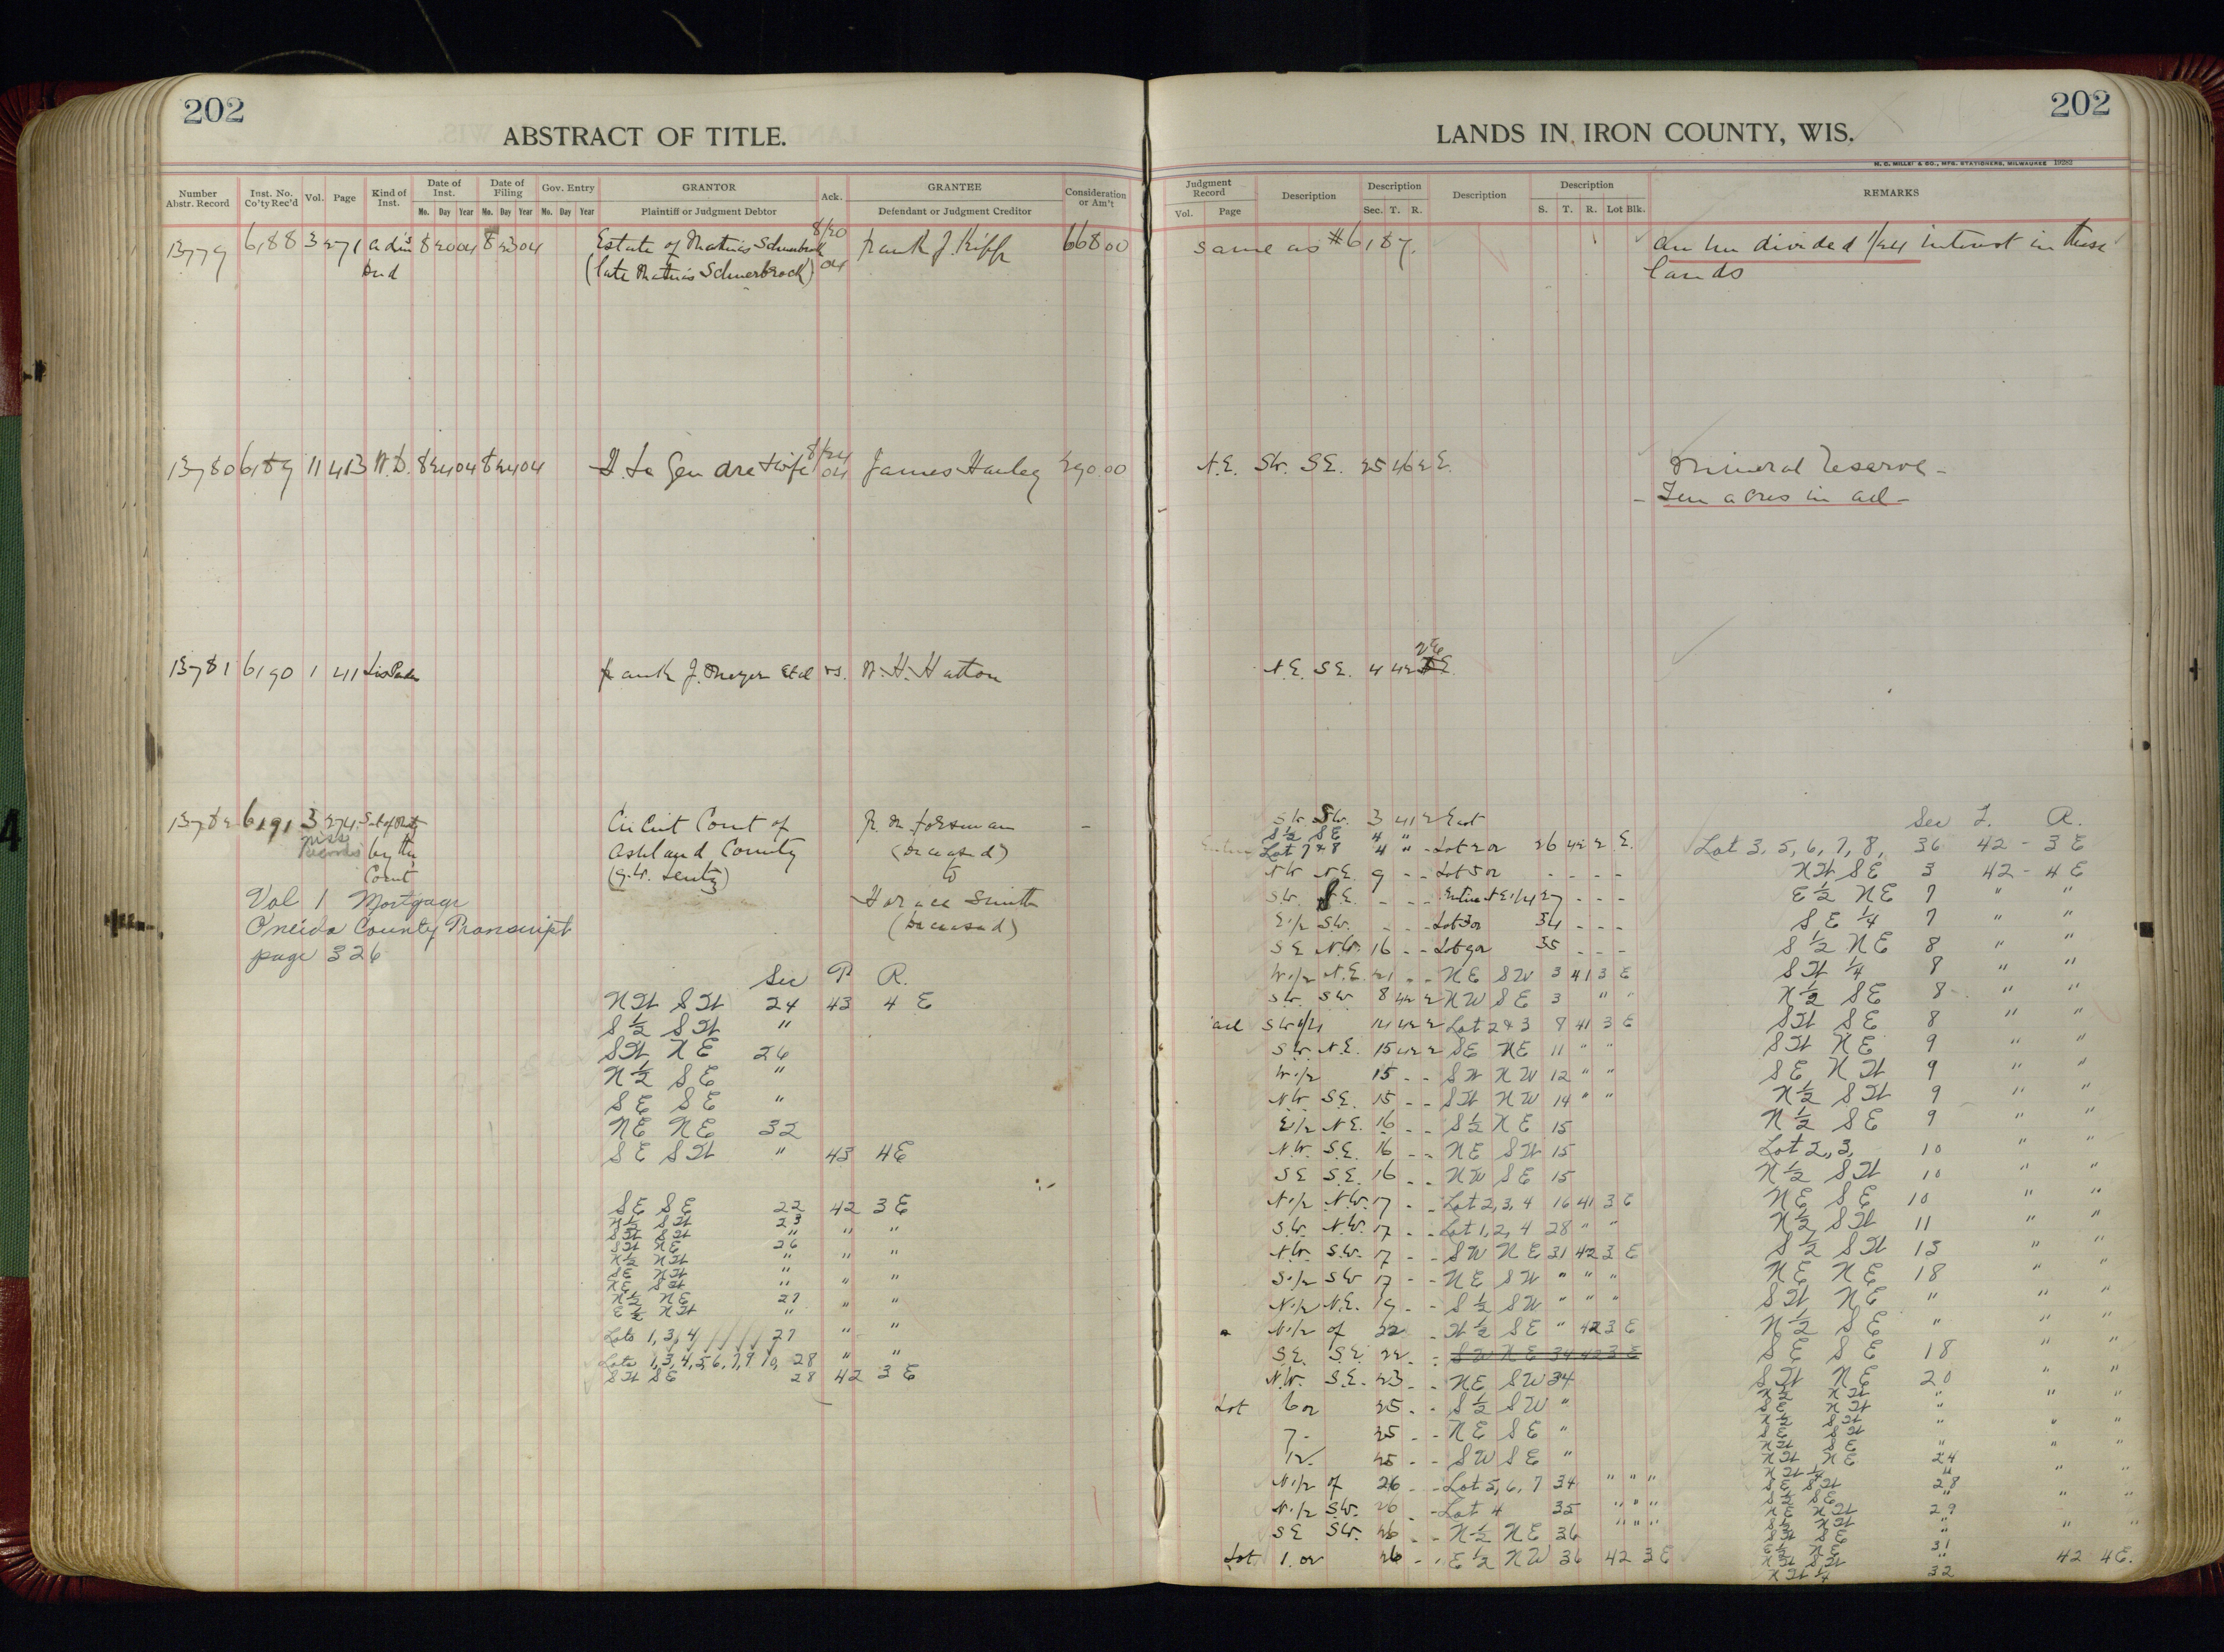 202
ABSTRACT OF TITLE.
Number Abstr. Record
Inst. No. Co'ty Rec'd
Vol.
Page
Kind of Inst.
Date of Inst.
Mo. Day Year
Date of Filing
Mo. Day Year
Gov. Entry
Mo. Day Year
GRANTOR
Plaintiff or Judgment Debtor
Ack.
GRANTEE
Defendant or Judgment Creditor
Consideration or Am't
13779 6188 3 271 8 20 04 8 23 04 Estate of Mathias 8/20 Frank J. 668 00
(late Mathias 04
13780 6189 11 413 W.D. 8 24 04 8 24 04 Gendre & wife 8/24 04 James Hanley 290.00
13781 6190 1 41 Lis Pen Frank J. Meyer et al vs. W. H. Hatton
13782 6191 3 274 Circuit Court of Forsman -
Misc Records by the Ashland County (Deceased)
Court to
Vol 1 Mortgage Horace Smith
Oneida County Transcript (Deceased)
page 326
Sec T R.
NW SW 24 43 4 E
S½ SW "
SW NE 26
N½ SE "
SE SE "
NE NE 32
SE SW " 43 4E
SE SE 22 42 3 E
N½ SW 23
SW SW " " "
SW NE 26
N½ NW " " "
SE NW "
NE SW " " "
N½ NE 27
E½ NW " " "
Lots 1, 3, 4 27 " "
Lots 1, 3, 4, 5, 6, 7, 9 10, 28 " "
SW SE 28 42 3 E
202
LANDS IN IRON COUNTY, WIS.
H. C. MILLER & CO., MFG. STATIONERS, MILWAUKEE 19282
Judgment Record
Vol. Page
Description
Description
Sec. T. R.
Description
Description
S. T. R. Lot Blk.
REMARKS
same as #6187. an un divided 1/24 interest in these
lands
N.E. SW. SE. 25 46 2 E. Mineral reserve -
- Ten acres in all -
2 E
N.E. SE. 4 42
Sec T. R.
SW. SW. 3 41 2 East
S½ SE 4 " -
Lot 7 & 8 4 " - Lot 2 or 26 42 2 E. Lot 3, 5, 6, 7, 8, 36 42 - 3 E
NW NE 9 - - Lot 5 or - - - - NW SE 3 42 - 4 E
SW. - - - Entire NE 1/4 27 - - - E½ NE 7 " "
E1/2 SW. - - - Lot 3 or 34 - - - SE¼ 7 " "
SE NW. 16 - - Lot 9 or 35 - - - S½ NE 8 " "
W1/2 N.E. 21 - - NE SW 3 41 3 E SW¼ 8 " "
SW. SW 8 42 2 NW SE 3 " " N½ SE 8 " "
all SW1/4 14 42 2 Lot 2 & 3 9 41 3 E SW SE 8 " "
SW. N.E. 15 42 2 SE NE 11 " " SW NE 9 " "
W1/2 15 - - SW NW 12 " " SE NW 9 " "
NW. SE. 15 - - SW NW 14 " " N½ SW 9 " "
E1/2 NE. 16 - - S½ NE 15 N½ SE 9 " "
N.W. S.E. 16 - - NE SW 15 Lot 2, 3, 10 " "
SE S.E. 16 - - NW SE 15 N½ SW 10 " "
N1/2 NW. 17 - - Lot 2, 3, 4 16 41 3 E NE SE 10 " "
SW. NW. 17 - - Lot 1, 2, 4 28 " " N½ SW 11 " "
NW. SW. 17 - - SW NE 31 42 3 E S½ SW 13 " "
S1/2 SW 17 - - NE SW " " " NE NE 18 " "
N1/2 N.E. 19 - - S½ SW " " " SW NE " "
N1/2 of 22 - W½ SE " 42 3 E N½ SE " " "
SE. S.E. 22 - - SW NE 34 42 3 E SE SE 18 " "
N.W. S.E. 23 - - NE SW 34 SW NE 20 " "
Lot 6 or 25 - - S½ SW "
7 - 25 - - NE SE "
12. 25 - - SW SE "
N1/2 of 26 - - Lot 5, 6, 7 34 " " "
N1/2 SW. 26 - Lot 4 35 " " "
SE SW. 26 - - N½ NE 36
Lot 1. or 26 - - E½ NW 36 42 3 E
N½ NW "
SE NW "
N½ SW "
SE SW
NW SE "
NW NE 24
NW¼ "
SE SW 28
S½ SE "
NE NW 29
S½ NW "
SW SE "
E½ NE 31
NW SW " 42 4E.
NW¼ 32